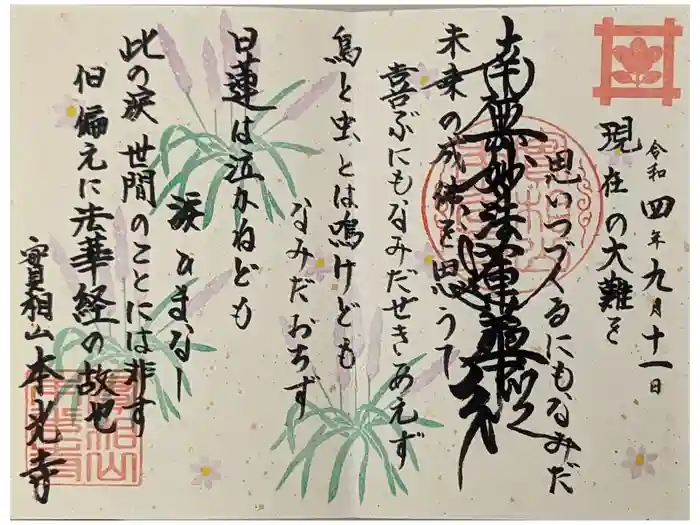 令和四年九月十一日
現在の大難を
思いつづくるにもなみだ
南無妙法蓮華経
未来の成佛を思うて
喜ぶにもなみだせきあえず
鳥と虫とは鳴けども
なみだおちず
日蓮は泣かねども
涙ひまなし
此の涙世間のことには非ず
但偏えに法華経の故也
實相山本光寺